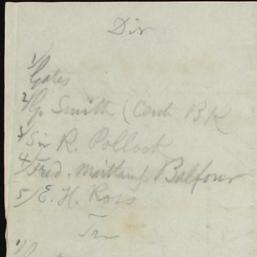 Div
1/ Gates
2/ G. Smith (Cash B.K
3/ Sir R. Pollock
4/ Fred. Maitland Balfour
5/ E. H. Ross